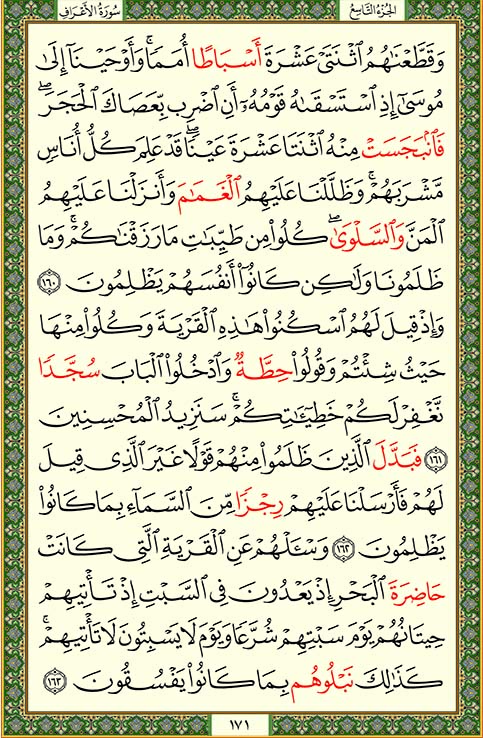 الجُزءُ التَّاسِعُ
سُورَةُ الأَعْرَافِ
وَقَطَّعْنَٰهُمُ ٱثْنَتَىْ عَشْرَةَ أَسْبَاطًا أُمَمًا ۚ وَأَوْحَيْنَآ إِلَىٰ
مُوسَىٰٓ إِذِ ٱسْتَسْقَىٰهُ قَوْمُهُۥٓ أَنِ ٱضْرِب بِّعَصَاكَ ٱلْحَجَرَ ۖ
فَٱنۢبَجَسَتْ مِنْهُ ٱثْنَتَا عَشْرَةَ عَيْنًا ۖ قَدْ عَلِمَ كُلُّ أُنَاسٍ
مَّشْرَبَهُمْ ۚ وَظَلَّلْنَا عَلَيْهِمُ ٱلْغَمَٰمَ وَأَنزَلْنَا عَلَيْهِمُ
ٱلْمَنَّ وَٱلسَّلْوَىٰ ۖ كُلُوا۟ مِن طَيِّبَٰتِ مَا رَزَقْنَٰكُمْ ۚ وَمَا
ظَلَمُونَا وَلَٰكِن كَانُوٓا۟ أَنفُسَهُمْ يَظْلِمُونَ ١٦٠
وَإِذْ قِيلَ لَهُمُ ٱسْكُنُوا۟ هَٰذِهِ ٱلْقَرْيَةَ وَكُلُوا۟ مِنْهَا
حَيْثُ شِئْتُمْ وَقُولُوا۟ حِطَّةٌ وَٱدْخُلُوا۟ ٱلْبَابَ سُجَّدًا
نَّغْفِرْ لَكُمْ خَطِيٓـَٰٔتِكُمْ ۚ سَنَزِيدُ ٱلْمُحْسِنِينَ
١٦١ فَبَدَّلَ ٱلَّذِينَ ظَلَمُوا۟ مِنْهُمْ قَوْلًا غَيْرَ ٱلَّذِى قِيلَ
لَهُمْ فَأَرْسَلْنَا عَلَيْهِمْ رِجْزًا مِّنَ ٱلسَّمَآءِ بِمَا كَانُوا۟
يَظْلِمُونَ ١٦٢ وَسْـَٔلْهُمْ عَنِ ٱلْقَرْيَةِ ٱلَّتِى كَانَتْ
حَاضِرَةَ ٱلْبَحْرِ إِذْ يَعْدُونَ فِى ٱلسَّبْتِ إِذْ تَأْتِيهِمْ
حِيتَانُهُمْ يَوْمَ سَبْتِهِمْ شُرَّعًا وَيَوْمَ لَا يَسْبِتُونَ ۙ لَا تَأْتِيهِمْ ۚ
كَذَٰلِكَ نَبْلُوهُم بِمَا كَانُوا۟ يَفْسُقُونَ ١٦٣
١٧١